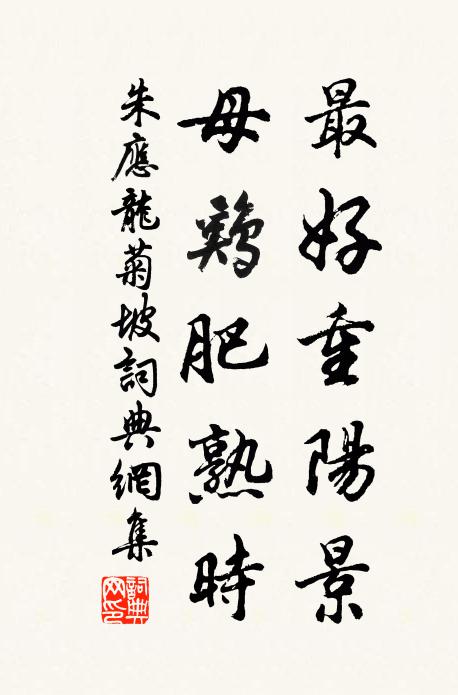 最好重陽景
母鷄肥熟時
朱應龍菊坡詞典網集
詞典網印